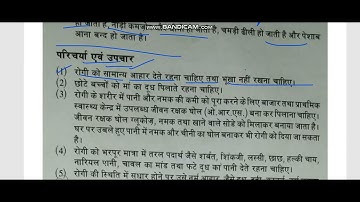 WWW.BANDICAM.COM
हो जाता है, नाड़ी कमज़ो
है, चमड़ी ढीली हो जाती है और पेशाब
आना बन्द हो जाता है।
परिचर्या एवं उपचार
(1) रोगी को सामान्य आहार देते रहना चाहिए तथा भूखा नहीं रखना चाहिए।
(2) छोटे बच्चों को मां का दूध पिलाते रहना चाहिए।
(3) रोगी के शरीर में पानी और नमक की कमी को पूरा करने के लिए बाजार तथा प्राथमिक
स्वास्थ्य केन्द्र में उपलब्ध जीवन रक्षक घोल (ओ.आर.एस.) बना कर पिलाना चाहिए।
जीवन रक्षक घोल ग्लूकोज, नमक तथा खाने वाले सोडे को मिलाकर बनाया जाता है।
घर पर उबले हुए पानी में नमक और चीनी का घोल बनाकर भी रोगी को दिया जा सकता
है।
(4) रोगी को भरपूर मात्रा में तरल पदार्थ जैसे शर्बत, शिकंजी, लस्सी, छाछ, हल्की चाय,
नारियल पानी, चावल का मांड तथा फटे दूध का पानी देते रहना चाहिए।
(5) रोगी की स्थिति में सुधार होने पर उसे नर्म आहार, जैसे